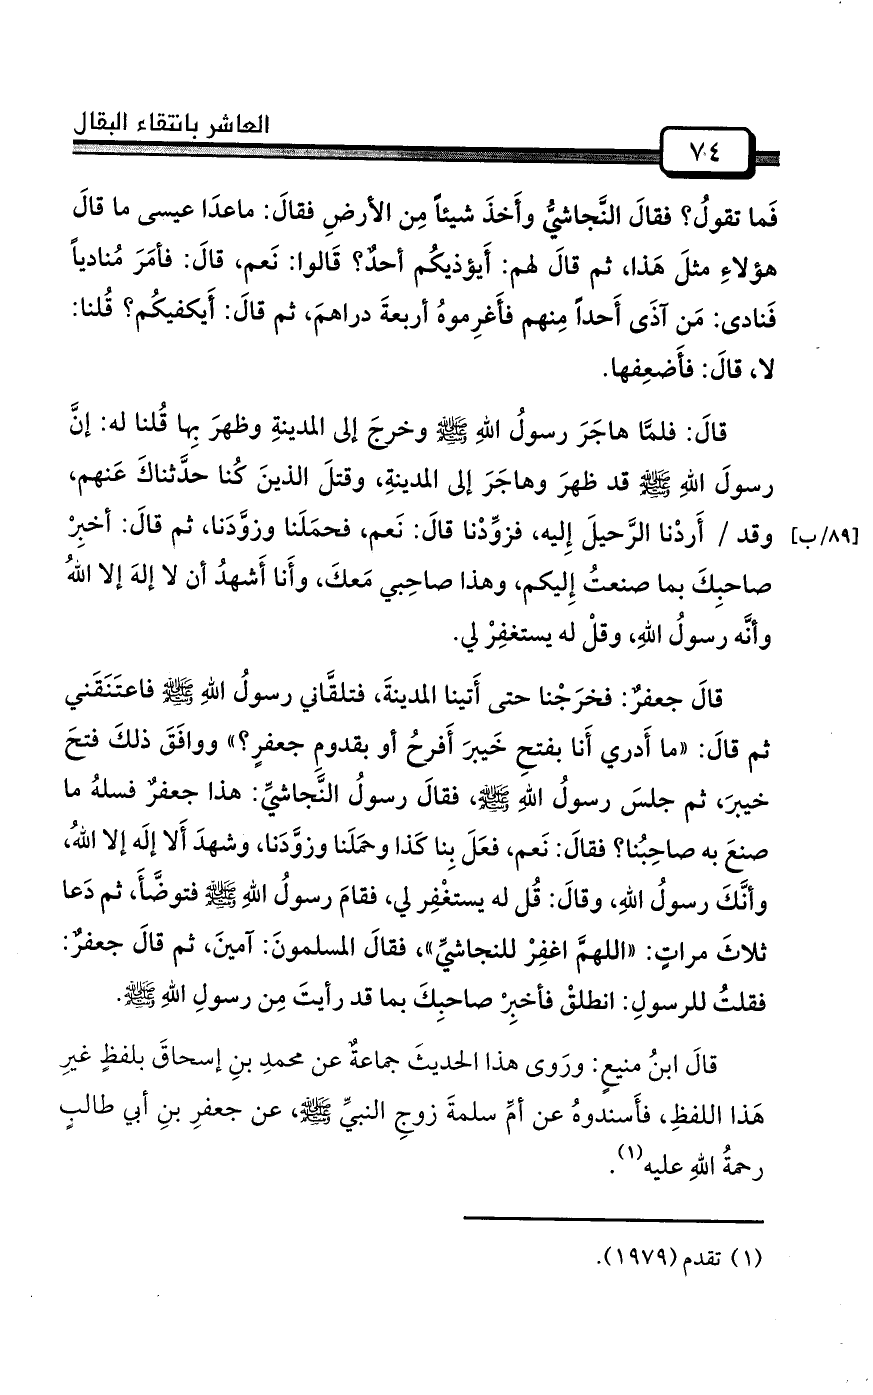 العاشر بانتقاء البقال
٧٠٤
فَما تقولُ؟ فقالَ النَّجاشيُّ وأَخذَ شيئاً مِن الأرضِ فقالَ: ماعدَا عيسى ما قالَ
هؤلاءِ مثلَ هَذا، ثم قالَ لهم: أَيؤذيكُم أحدٌ؟ قَالوا: نَعم، قالَ: فأمَرَ مُنادياً
فَنادى: مَن آذَى أَحداً مِنهم فأَغرِموهُ أربعةَ دراهمَ، ثم قالَ: أَيكفيكُم؟ قُلنا:
لا، قالَ: فأَضعِفها.
قالَ: فلمَّا هاجَرَ رسولُ اللهِ ﷺ وخرجَ إلى المدينةِ وظهرَ بِها قُلنا له: إنَّ
رسولَ اللهِ ﷺ قد ظهرَ وهاجَرَ إلى المدينةِ، وقتلَ الذينَ كُنا حدَّثناكَ عَنهم،
وقد / أَردْنا الرَّحيلَ إِليه، فزوِّدْنا قالَ: نَعم، فحمَلَنا وزوَّدَنا، ثم قالَ: أخبِرْ [٨٩/ب]
صاحبِكَ بما صنعتُ إِليكم، وهذا صاحِبي مَعكَ، وأَنا أَشهدُ أن لا إلهَ إلا اللهُ
وأنَّه رسولُ اللهِ، وقلْ له يستغفِرْ لي.
قالَ جعفرٌ: فخرَجْنا حتى أَتينا المدينةَ، فتلقَّاني رسولُ اللهِ ﷺ فاعتَنَقَني
ثم قالَ: «ما أَدري أَنا بفتحِ خَيبرَ أَفرحُ أو بقدومِ جعفرٍ؟» ووافَقَ ذلكَ فتحَ
خيبرَ، ثم جلسَ رسولُ اللهِ ﷺ، فقالَ رسولُ النَّجاشيِّ: هذا جعفرٌ فسلهُ ما
صنعَ به صاحبُنا؟ فقالَ: نَعم، فعَلَ بِنا كَذا وحمَلَنا وزوَّدَنا، وشهدَ أَلا إلَه إلا اللهُ،
وأنَّكَ رسولُ اللهِ، وقالَ: قُل له يستغْفِر لي، فقامَ رسولُ اللهِ ﷺ فتوضَّأَ، ثم دَعا
ثلاثَ مراتٍ: «اللهمَّ اغفِرْ للنجاشيِّ»، فقالَ المسلمونَ: آمينَ، ثم قالَ جعفرٌ:
فقلتُ للرسولِ: انطلقْ فأخبِرْ صاحبِكَ بما قد رأيتَ مِن رسولِ اللهِ ﷺ.
قالَ ابنُ منيعٍ: ورَوى هذا الحديثَ جماعةٌ عن محمدِ بنِ إسحاقَ بلفظٍ غيرِ
هَذا اللفظِ، فأَسندوهُ عن أمِّ سلمةَ زوجِ النبيِّ ﷺ، عن جعفرِ بنِ أبي طالبٍ
رحمةُ اللهِ عليه(١).
(١) تقدم (١٩٧٩).